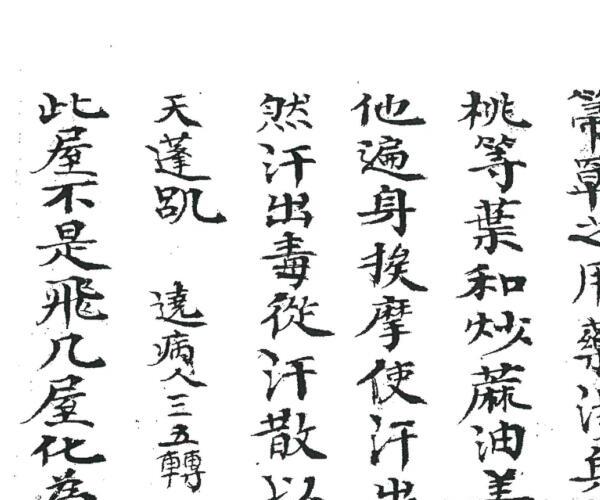 罩之用藥
桃等葉和炒蔴油
他遍身挨摩使汗出
然汗出毒從汗散以
天蓬呪 遶病人三五轉
此屋不是飛几屋化為